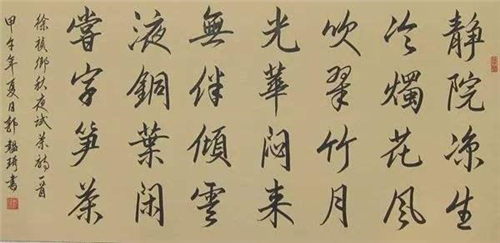 靜院凉生
冷燭花風
吹翠竹月
光華悶来
無伴傾雲
液銅葉閑
嘗字笋茶
徐禎卿秋夜試茶詩一首
甲午年夏日郭琦書